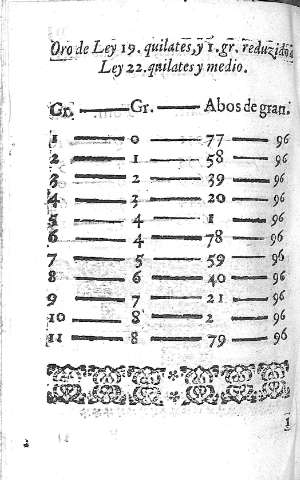 Oro de Ley 19. quilates, y 1. gr. reduzido a
Ley 22. quilates y medio.
Gr. Gr. Abos de gran.
1 0 77 96
2 1 58 96
3 2 39 96
4 3 20 96
5 4 1 96
6 4 78 96
7 5 59 96
8 6 40 96
9 7 21 96
10 8 2 96
11 8 79 96